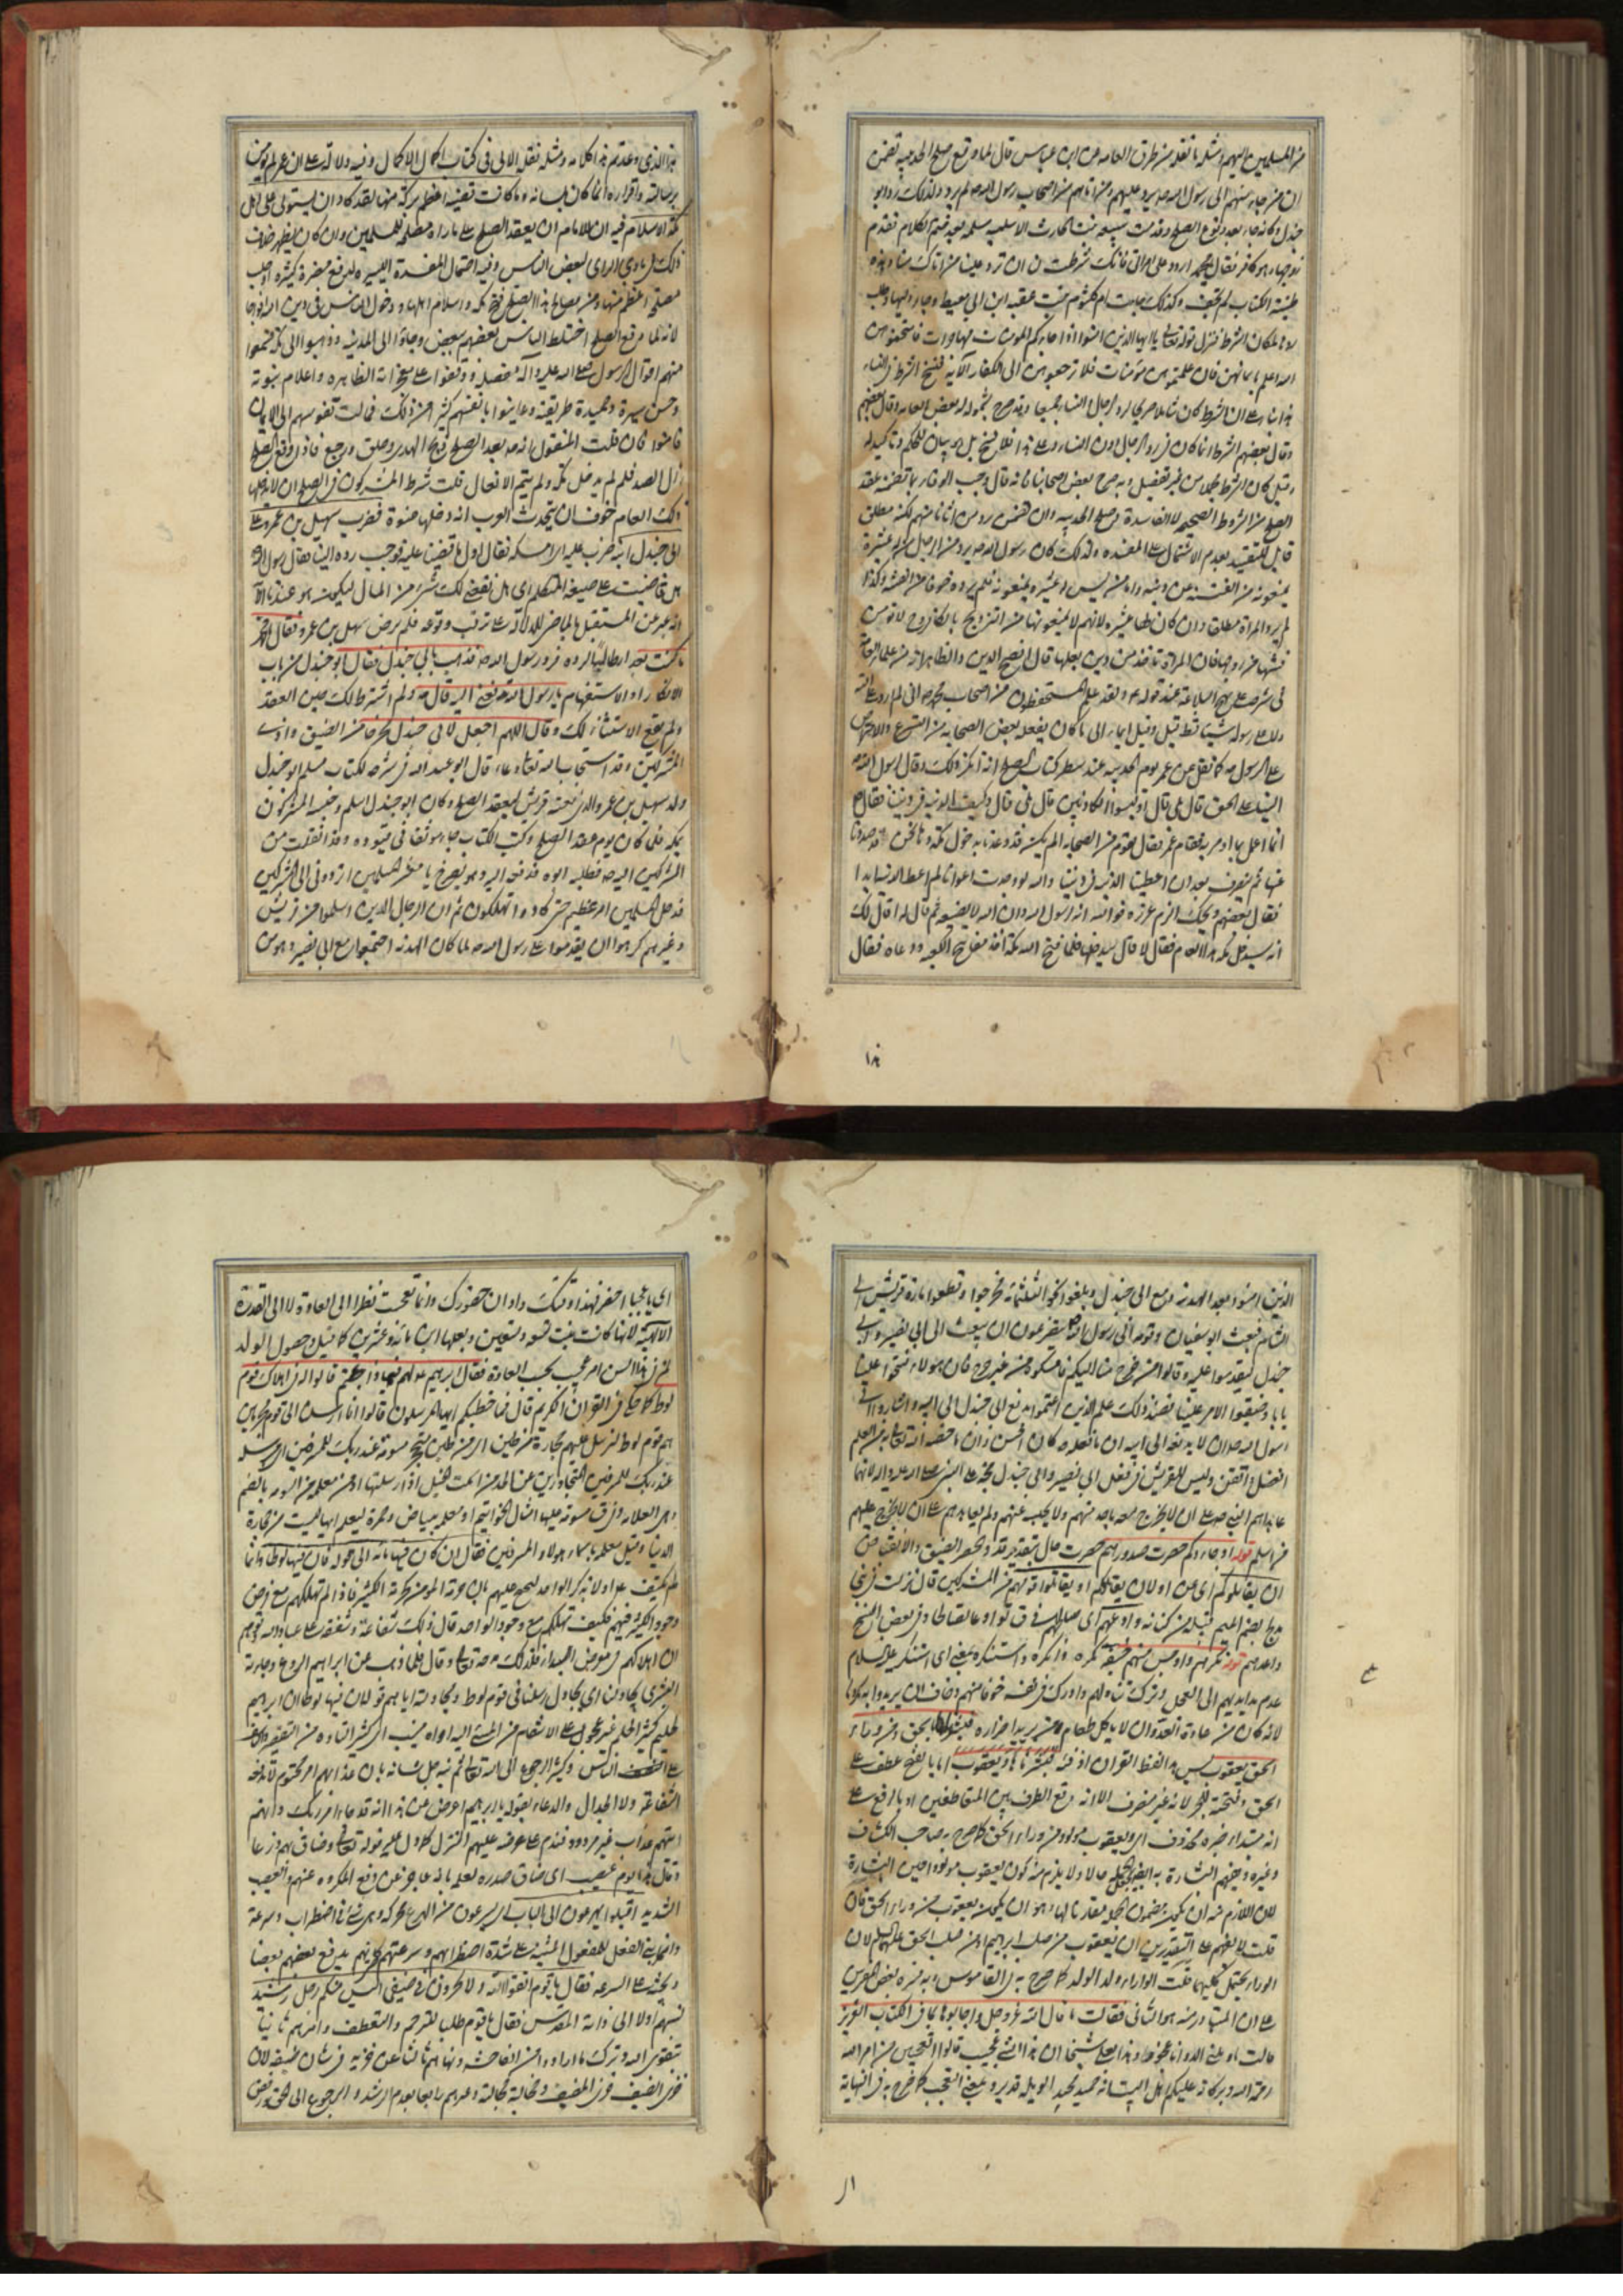 من المسلمين اليهم ومثله ما نقله من طرق العامة عن ابن عباس قال لما وقع صلح الحديبية تضمن
ان من جاء منهم الى رسول الله صه يرد عليهم ومن اتاهم من اصحاب رسول الله صه لم يرد ولذلك رد ابو
جندل وكانه جاء بعد وقوع الصلح وقدمت سبيعة بنت الحارث الاسلمية مسلمة بعد ختم الكلام فقدم
زوجها وهو كافر فقال يا محمد اردد على امراتي فانك شرطت لن ان ترد علينا من اتاك منا وهذه
طينة الكتاب لم تجف وكذلك جاءت ام كلثوم بنت عقبه ابن ابي معيط وجاء وليها وطلب
ردها لمكان الشرط فنزل قوله تعالى يا ايها الذين امنوا اذا جاءكم المومنات مهاجرات فامتحنوهن
الله اعلم بايمانهن فان علمتموهن مؤمنات فلا ترجعوهن الى الكفار الآية فنسخ الشرط في النساء
هذا بناء على ان الشرط كان شاملا لرد الرجال والنساء جميعا وقد صرح بشموله بعض العامه وقال بعضهم
وقال بعضهم الشرط انما كان في رد الرجال دون النساء وعلى هذا فلا نسخ بل هو بيان للحكم وتاكيد له
وقيل كان الشرط مجملا من غير تفصيل وبه صرح بعض اصحابنا فانه قال وجب الوفاء بما تضمنه عقد
الصلح من الشروط الصحيحه لا الفاسدة وصلح الحديبيه وان تضمن رد من اتانا منهم لكنه مطلق
قابل للتقييد بعدم الاشتمال على المفسده ولذلك كان رسول الله صه يرد من الرجال من له عشيرة
يمنعونه من الفتنه عن دينه واما من ليس له عشيرة يمنعونه فلم يرده خوفا من الفتنه وكذا
لم يرد المراة مطلقا وان كان لها عشيره لانهم لا يمنعونها من التزويج بالكافر وح لا تومن
فتنتها من زوجها فان المراة تاخذ من دين بعلها قال افصح الدين والظاهر انه من علماء العامة
في شرحه على نهج البلاغة عند قوله ع ولقد علم المستحفظون من اصحاب محمد صه اني لم ارد على الله
ولا على رسوله شيئا قط قيل وفيه ايماء الى ما كان يفعله بعض الصحابه من التسرع والاعتراض
على الرسول صه كما نقل عن عمر يوم الحديبيه عند سطر كتاب الصلح انه انكر ذلك وقال لرسول الله صه
السنا على الحق قال بلى قال اوليسوا الكاذبين قال بلى قال وكيف الدنيه في ديننا فقال ص
انما اعمل بما اومر به فقام عمر فقال لقوم من الصحابه الم يكن قد وعدنا بدخول مكة وها نحن قد صددنا
عنها ثم ننصرف بعد ان اعطينا الدنيه في ديننا والله لو وجدت اعوانا لم اعط الدنيه ابدا
فقال بعضهم ويحك الزم غرزه فوالله انه لرسول الله وان الله لا يضيعه ثم قال له اقال لك
انه سيدخل مكه هذا العام فقال لا قال سيدخلها فلما فتح الله مكة اخذ مفاتيح الكعبه ودعاه فقال
هذا
هذا الذي وعدتم هذا كلامه ومثله نقله الابي في كتاب اكمال الاكمال وفيه دلالة على ان عمر لم يومن
برسالته واقراره انما كان بلسانه وما كانت تقيته اعظم بركة منها لقد كاد ان يستولى على اهل
مكة الاسلام فيه ان للامام ان يعقد الصلح على ما راه مصلحه للمسلمين وان كان يظهر خلاف
ذلك في بادي الراي لبعض الناس وفيه احتمال المفسدة اليسيره لدفع مضرة كثيره او جلب
مصلحة اعظم منها ومن مصالح هذا الصلح فتح مكه واسلام اهلها ودخول الناس في دين الله افواجا
لانه لما وقع الصلح اختلط الناس بعضهم ببعض وجاؤا الى المدينه وذهبوا الى مكة فسمعوا
منهم اقوال الرسول صلى الله عليه وآله مفصله ووقفوا على معجزاته الظاهره واعلام نبوته
وحسن سيرة وحميدة طريقته وعاينوا بانفسهم كثيرا من ذلك فمالت نفوسهم الى الايمان
فامنوا فان قلت المنقول انه صه بعد الصلح ذبح الهدى وحلق ورجع فاذا وقع الصلح
زال الصد فلم لم يدخل مكة ولم يتم الافعال قلت شرط المشركون في الصلح ان لا يدخلها
ذلك العام خوفا من ان يتحدث العرب انه دخلها عنوة فضرب سهيل بن عمرو على
ابي جندل ابنه
هل قاضيت على صيغة المتكلم
انه عبر عن المستقبل بالماضي للدلالة على ترقب وقوعه فلم يرض سهل بن عمرو فقال
فرد رسول الله صه فذهب بابي جندل فقال ابو جندل من باب
الانكار او الاستفهام يا رسول الله تدفعني اليه قال صه ولم اشترط لك حين العقد
ولم يقع الاستثناء لك وقال اللهم اجعل لابي جندل مخرجا من الضيق واذى
المشركين وقد استجاب الله تعالى دعاءه قال ابو عبد الله في شرحه لكتاب مسلم ابو جندل
ولد سهيل بن عمرو الذي بعثه قريش ليعقد الصلح وكان ابو جندل اسلم وحبسه المشركون
بمكه فلما كان يوم عقد الصلح وكتب الكتاب جاء موثقا في قيوده وقد انفلت من
المشركين اليه صه فطلبه ابوه فدفعه اليه وهو يصرخ يا معشر المسلمين اتردوني الى المشركين
فدخل المسلمين امر عظيم حتى كادوا يهلكون ثم ان الرجال الذين اسلموا من قريش
وغيرهم كرهوا ان يقدموا على رسول الله صه لما كان الهدنه اجتمعوا مع ابي بصير وهو من
الذين امنوا بعد الهدنه ومع ابي جندل وبلغوا نحو الثلثمائه فخرجوا وقطعوا مارة قريش الى
الشام فبعث ابو سفيان وقومه الى رسول الله صه يتضرعون ان يبعث الى ابي بصير وابي
جندل ليقدموا عليه وقالوا من خرج منا اليكم فامسكوه من غير حرج فان هولاء فتحوا علينا
بابا وضيقوا الامر علينا فعند ذلك علم الذين اغتموا بدفع ابي جندل الى ابيه واشاروا الى
رسول الله صه ان لا يدفعه الى ابيه ان ما فعله كان احسن وان ما خصه الله تعالى به من العلم
افضل واتقن وليس للقريش في فعل ابي بصير وابي جندل حجة على النبي صلى الله عليه واله لانهما
عاهداهم النبي صه على ان لا يخرج معه باحد منهم ولا يحبسه عنهم ولم يعاهدهم على ان لا يخرج عليهم
من اسلم قوله او جاءوكم حصرت صدورهم حصرت حال بتقدير قد والحصر الضيق والانقباض
ان يقاتلوكم اي عن او لان يقاتلوكم او يقاتلوا قومهم من المشركين قال نزلت في بني
مدلج بضم الميم قبيلة من كنانه وادعهم اي صالحهم
واعدهم قوله نكرهم واوجس منهم خيفة نكره وانكره واستنكره بمعنى اي استنكر عليه السلام
عدم مد ايديهم الى العجل وترك تناولهم وادرك في نفسه خوفا منهم وخاف ان يريدوا به مكروها
لانه كان من عادة العدو ان لا ياكل طعام من يريد اضراره فبشرناها باسحق ومن وراء
اسحق يعقوب ليس هذا لفظ القران اذ فيه فبشرناها ويعقوب اما بالفتح عطف على
اسحق وفتحته للجر لانه غير منصرف الا انه وقع الظرف بين المتعاطفين او بالرفع على
انه مبتداء خبره محذوف اي ويعقوب مولود من وراء اسحق كما صرح به صاحب الكشاف
وغيره
لان اللازم منه ان يكون مضمون الجمله مقارنا لها وهو ان يكون يعقوب من وراء اسحق فان
قلت لا يفهم على التقديرين ان يعقوب من صلب ابراهيم او من صلب اسحق عليهما السلام لان
الوراء يحتمل كليهما قلت الوراء ولد الولد كما صرح به في القاموس وبه فسره بعض المفسرين
على ان المتبادر منه هو الثاني فقالت ما قال الله عز وجل واجابوها بما في الكتاب العزيز
قالت يا ويلتى االد وانا عجوز وهذا بعلي شيخا ان هذا لشئ عجيب قالوا اتعجبين من امر الله
رحمة الله وبركاته عليكم اهل البيت انه حميد مجيد الويله قد يرد بمعنى التعجب كما صرح به في النهاية
اى
اى يا عجبا احضر فهذا وقتك واوان حضورك وانما تعجبت نظرا الى العادة لا الى القدرة
الالهية لانها كانت بنت تسع وتسعين وبعلها ابن مائة وعشرين كما قيل وحصول الولد
لمن في هذا السن امر عجيب بحسب العادة فقال ابراهيم ع لهم فيما ذا جئتم قالوا له في اهلاك قوم
لوط كما حكى في القران الكريم قال فما خطبكم ايها المرسلون قالوا انا ارسلنا الى قوم مجرمين
هم قوم لوط لنرسل عليهم حجارة من طين اي من طين متحجر مسومة عند ربك للمسرفين اى مرسلة
عند ربك للمسرفين المتجاوزين عن الحد من اسمت الخيل اذا ارسلتها او من معلمه من السومه بالضم
وهي العلامه وفرق مسومه عليها امثال الخواتيم او معلمه ببياض وحمرة ليعلم انها ليست من حجارة
الدنيا وقيل معلمه باسماء هولاء المسرفين فقال ان كان فيها مائه الى قوله قال فان فيها لوطا وانما
لم يكتف ع اولا بذكر الواحد ليحتج عليهم بان حرمة المومنين كحرمة الكثير فاذا لم تهلكهم مع فرض
وجود الكثير فيهم فكيف تهلكهم مع وجود الواحد قال ذلك شفاعة وشفقة على عباد الله
فلذلك مدحه تعالى وقال فلما ذهب عن ابراهيم الروع وجاءته
البشرى يجادلنا اي يجادل رسلنا في قوم لوط ومجادلته اياهم قوله ان فيها لوطا ان ابراهيم
لحليم كثير الحلم غير عجول على الانتقام من المسئ اليه اواه منيب اي كثير التاوه من التقصير والتاسف
على الناس وكثير الرجوع الى الله تعالى ثم نبه جل شانه بان عذابهم امر محتوم لا تدفعه
الشفاعة ولا الجدال والدعاء بقوله يا ابراهيم اعرض عن هذا انه قد جاء امر ربك وانهم
اتيهم عذاب غير مردود
وقال هذا يوم عصيب اى ضاق صدره لعلمه بانه عاجز عن دفع المكروه عنهم والعصيب
الشديد اقبلوا يهرعون الى الباب اى يسرعون من الهرع محركه وهو مشى في اضطراب وسرعة
وانما بني الفعل للمفعول للتنبيه على شدة اضطرابهم وسرعتهم كانهم يدفع بعضهم بعضا
ويحثه على السرعه فقال يا قوم اتقوا الله ولا تخزون في ضيفي اليس منكم رجل رشيد
نسبهم اولا الى ذاته المقدس فقال يا قوم طلبا للترحم والتعطف وامرهم ثانيا
بتقوى الله وترك ما ارادوا من الفاحشه ونهاهم ثالثا عن خزيه في شان ضيفه لان
خزي الضيف خزي المضيف